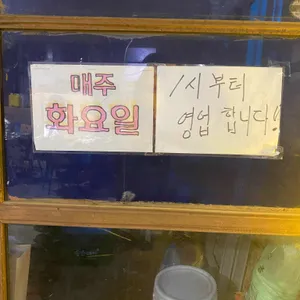 매주
화요일
1시부터
영업 합니다!